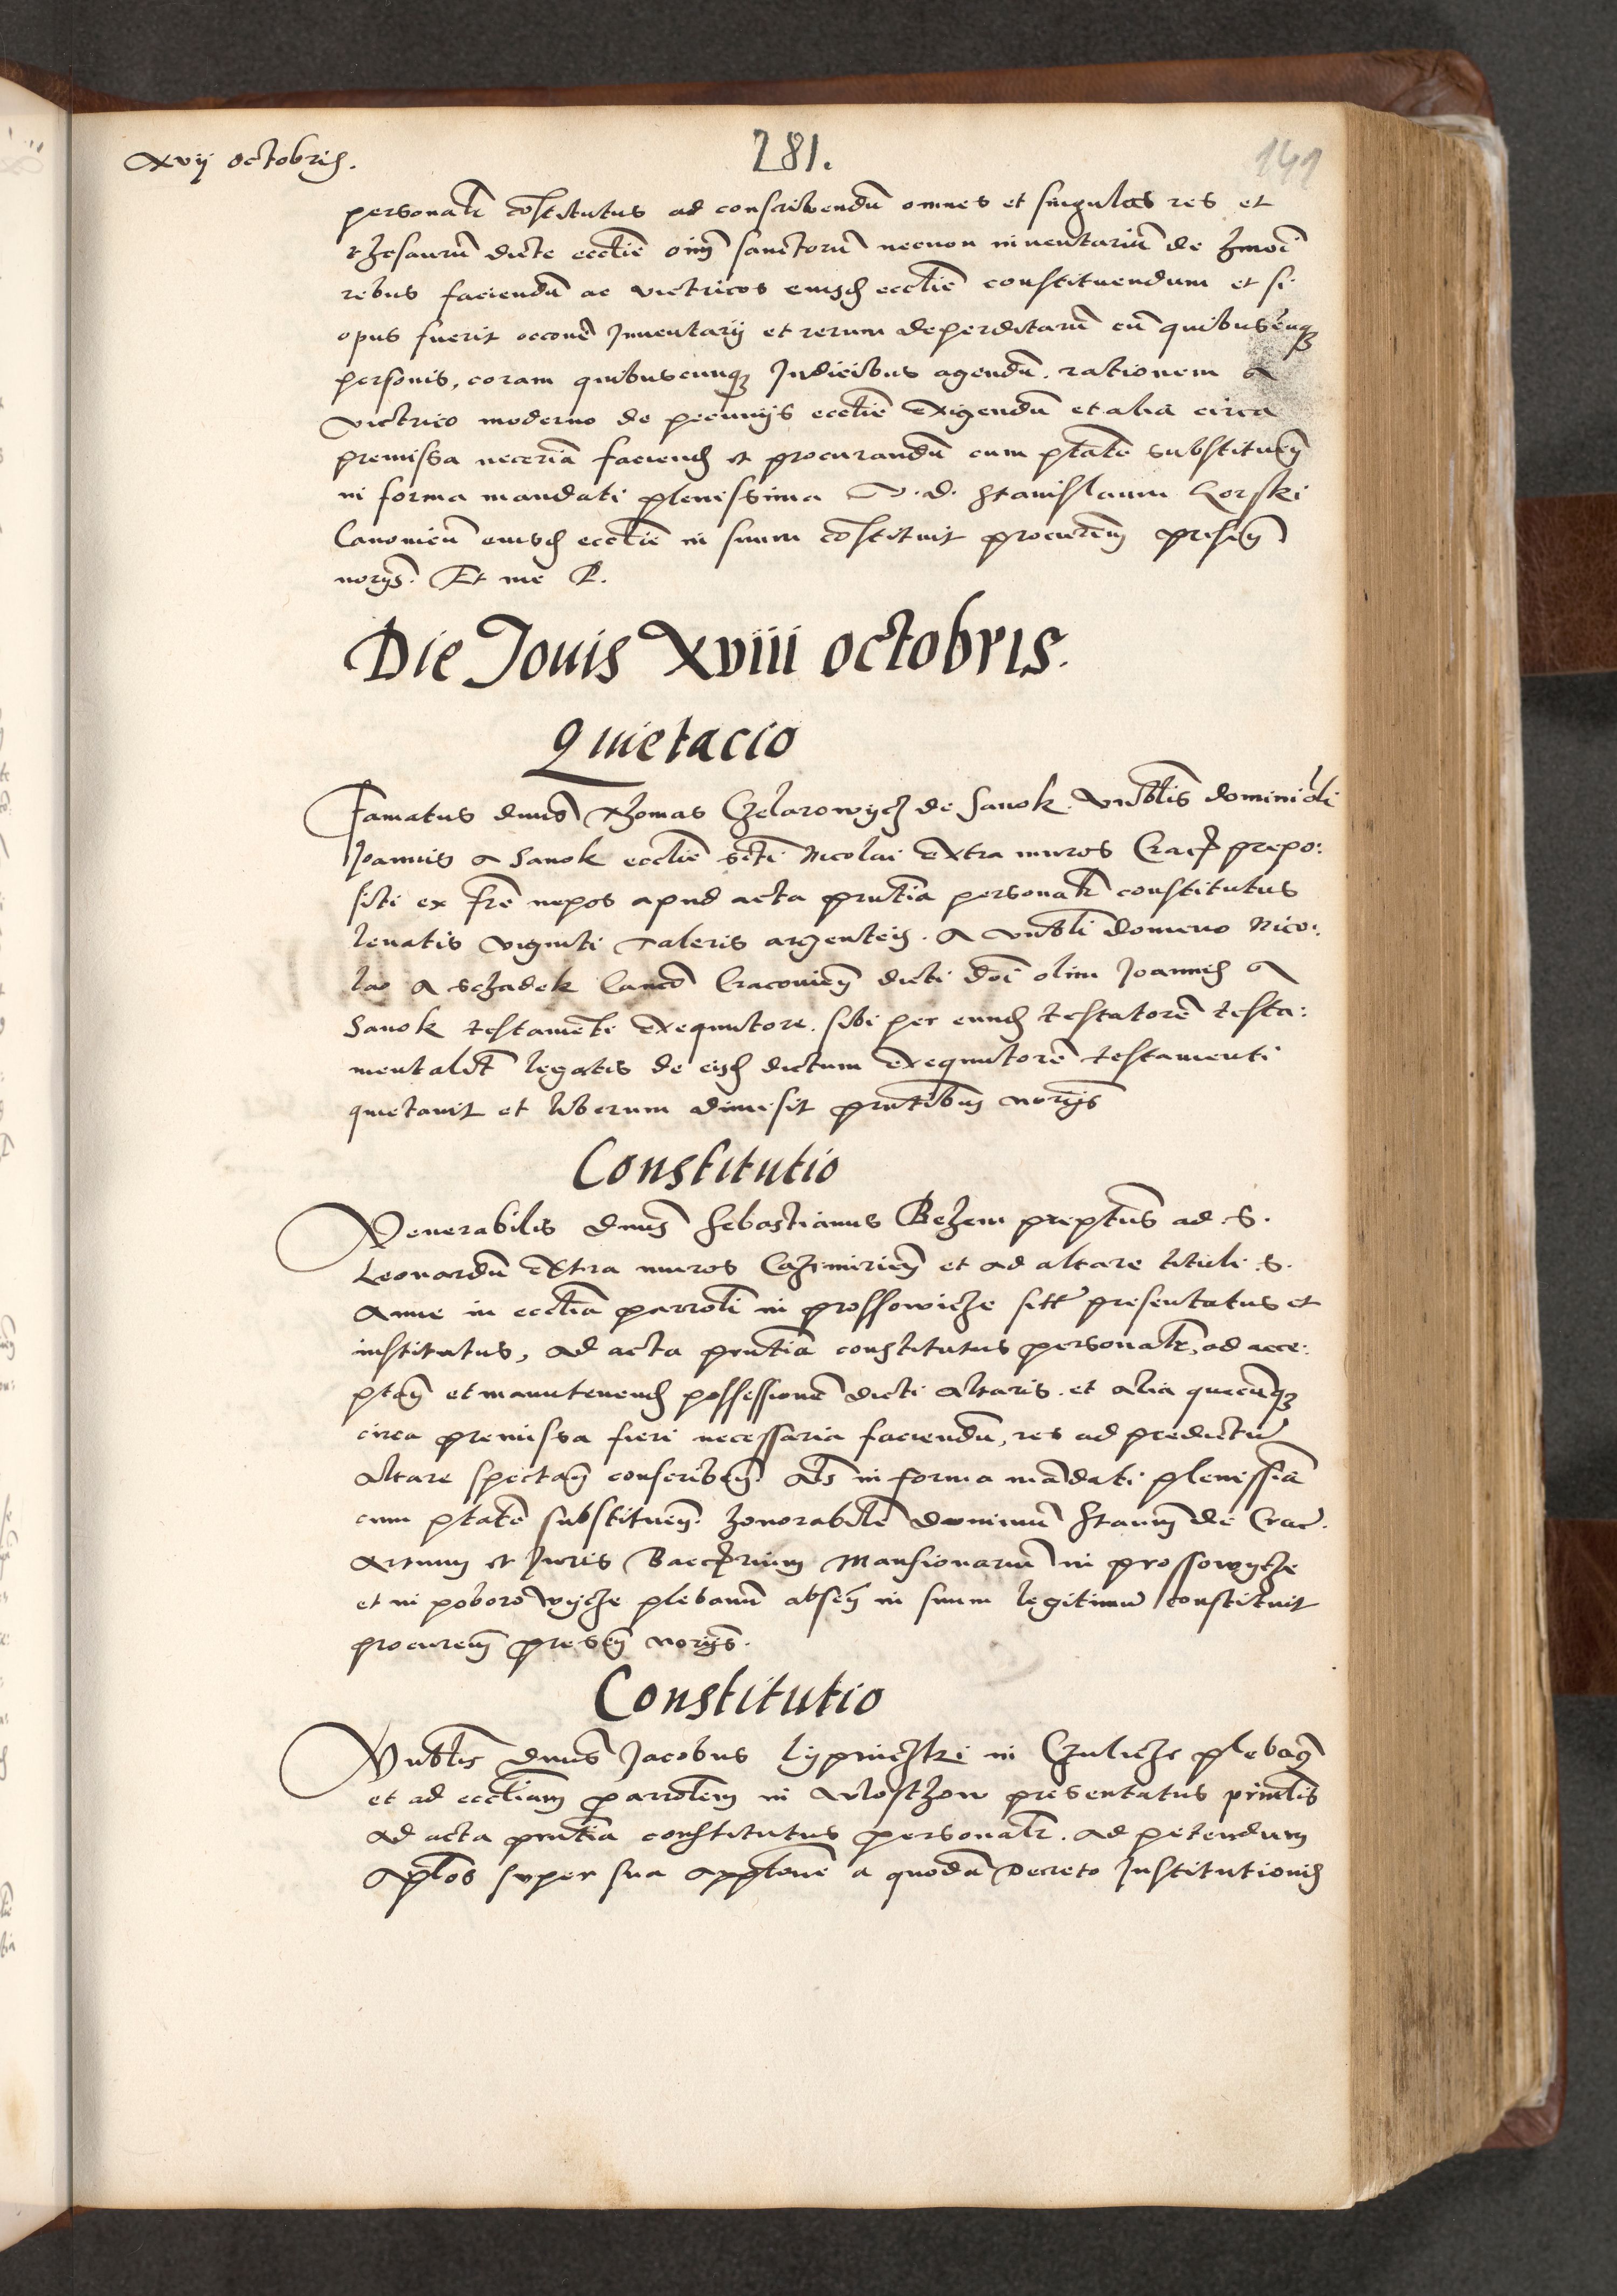 xvij octobris.
281.
141
personalr cōstitutus ad conscribendū omnes et singulas res et
thesaurū dicte ecclīe oīm sanctorū necnon inventariū de hmōi
rebus faciendū ac victricos eiusd ecclīe constituendum et si
opus fuerit occone Inventarij et rerum deperditarū cū quibuscūq
personis, coram quibuscunq Judicibus agendū. rationem a
victrico moderno de pecunijs ecclīe exigendū et alia circa
premissa necēria faciend et procurandū cum ptāte substituen
in forma mandati plenissima V. d. Stanislaum Gorski
Canonicū eiusd ecclīe in suum cōstituit procurem presen
norijs. Et me P.
Die Jouis xviii octobris.
Quietacio
Famatus dnus Thomas Czelarowycz de Sanok. vnblis domini oli
Joannis a Sanok ecclīe scti Nicolai extra muros Crac prepo:
siti ex frē nepos apud acta pntia personalr constitutus
levatis viginti taleris argenteis. a vnbli domino Nico:
lao a Schadek Canco Cracovien dicti dni olim Joannis a
Sanok testamēti exequutore. sibi per eund testatorē testa:
mentalit legatis de eisd dictum exequutorē testamenti
quietavit et liberum dimisit pntibus norijs
Constitutio
Venerabilis dnus Sebastianus Bezem preptus ad .S.
Leonardū extra muros Cazimirien et ad altare tituli .S.
Anne in ecclīa parroli in prossowicze sitū presentatus et
institutus, ad acta pntia constitutus personalr, ad acce:
ptan et manutenend possessionē dicti altaris. et alia quecūq
circa premissa fieri necessaria faciendū, res ad predictū
altare spectan conscriben. als in forma mādati plenissia
cum ptāte substituen. honorabilē dominū Stanm de Crac.
artium et Juris Baccrium Mansionariū in prossowycze
et in poborowycze plebanū absen in suum legitimū constituit
procurem presen norijs.
Constitutio
Vnblis dnus Jacobus lypniczki in Czulicze pleban
et ad eccliam parrolem in Wlosczow presentatus prinlis
ad acta pntia constitutus personalr. ad petendum
aplos super sua applōne a quodā Decreto Institutionis